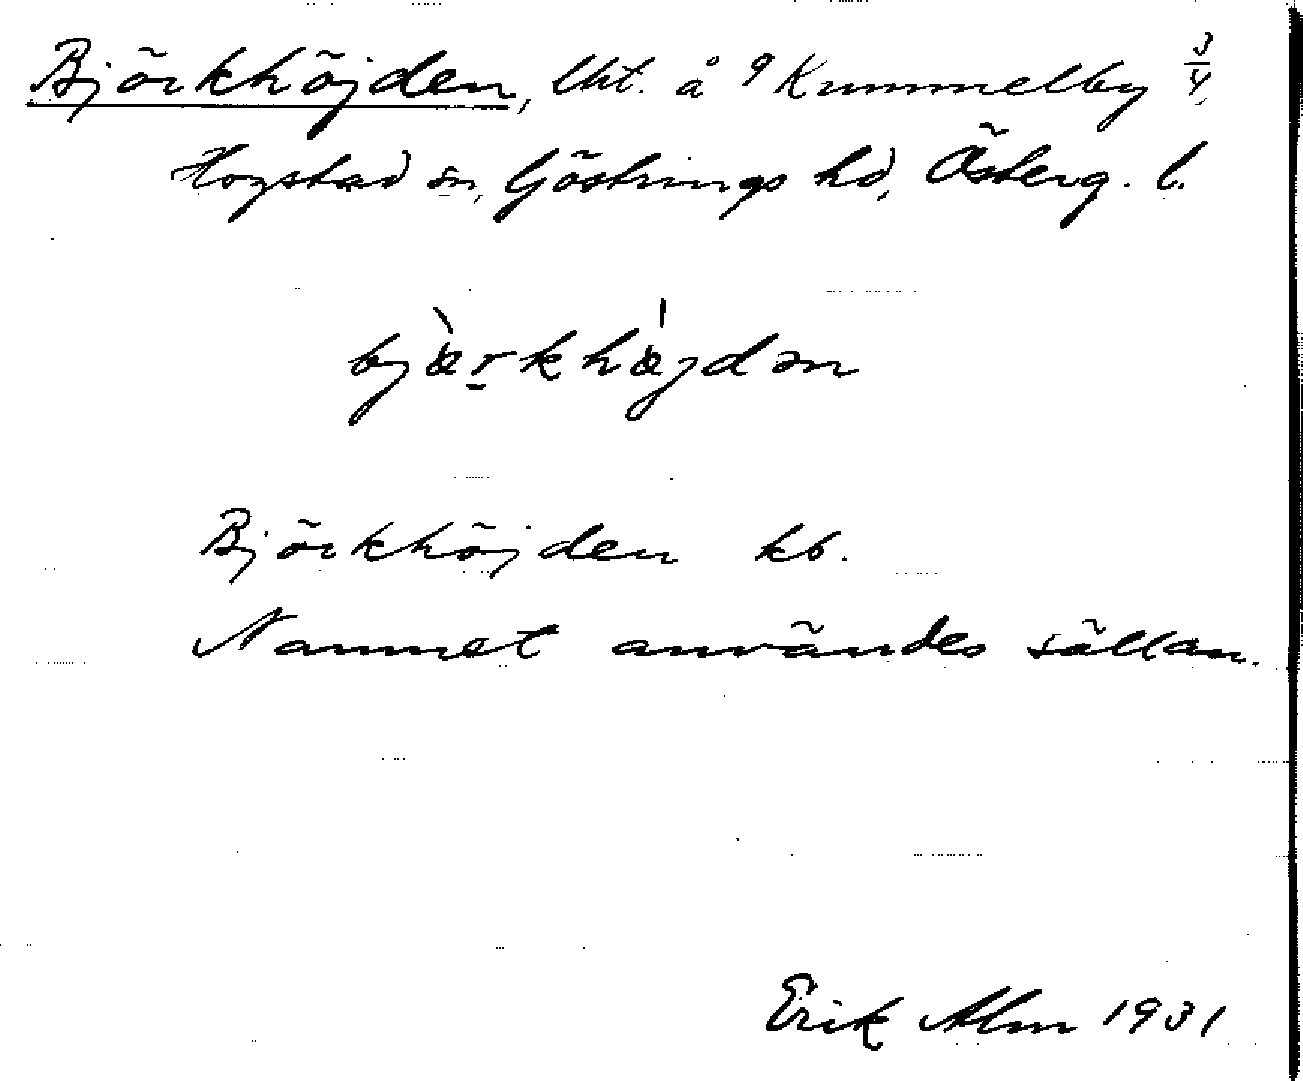 Björkhöjden, lht. å 9 Kummelby 3/4,
Hogstad sn, Göstrings hd, Österg. l.
bjæ̀rkhǽjdən
Björkhöjden kb.
Namnet användes sällan.
Erik Alm 1931